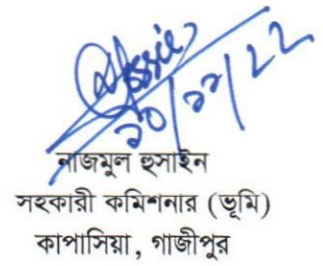 ২০/১১/২২
নাজমুল হুসাইন
সহকারী কমিশনার (ভূমি)
কাপাসিয়া, গাজীপুর